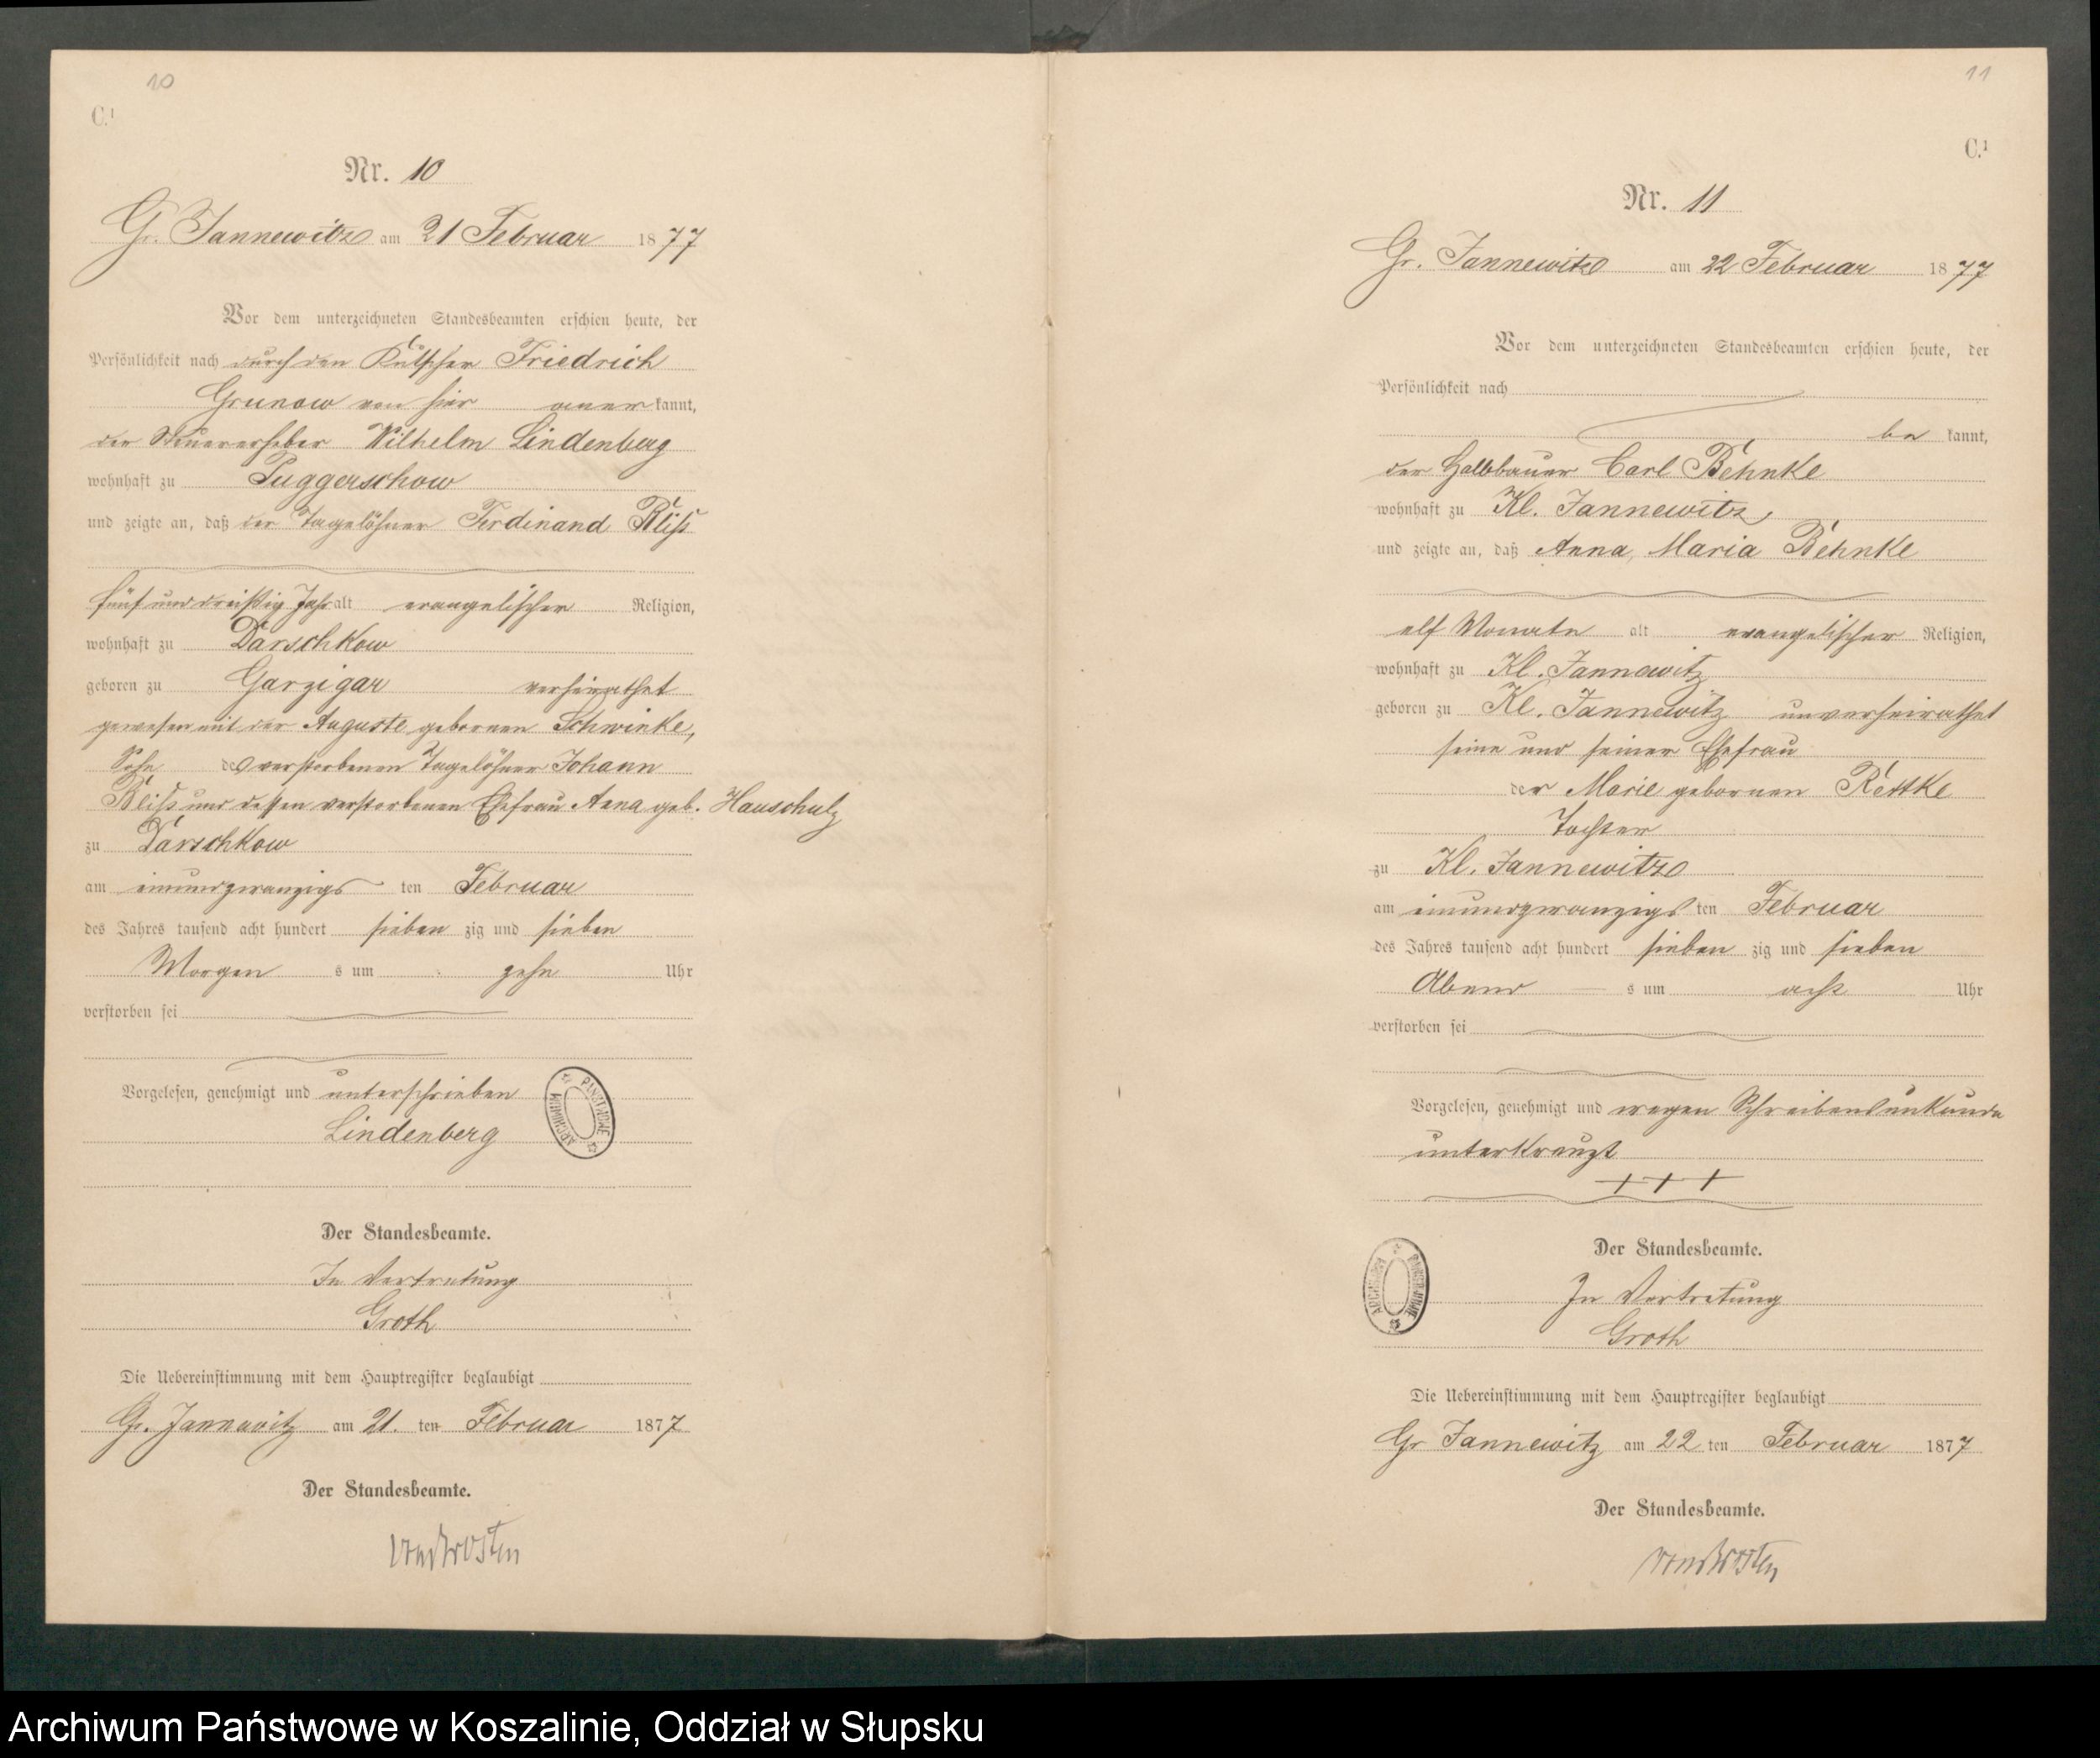 10
C.1
Nr. 10
Gr. Jannewitz am 21 Februar 1877
Vor dem unterzeichneten Standesbeamten erschien heute, der
Persönlichkeit nach durch den Kutscher Friedrich
Grunow von hier anerkannt,
der Steuererheber Wilhelm Lindenberg
wohnhaft zu Puggerschow
und zeigte an, daß der Tagelöhner Ferdinand Bliß
fünf und dreißig Jahr alt evangelischer Religion,
wohnhaft zu Darschkow
geboren zu Garzigar verheirathet
gewesen mit der Auguste gebornen Schwinke,
Sohn des verstorbenen Tagelöhner Johann
Bliß und dessen verstorbenen Ehefrau Anna geb. Hauschulz
zu Darschkow
am einundzwanzigsten Februar
des Jahres tausend acht hundert siebenzig und sieben
Morgens um zehn Uhr
verstorben sei
Vorgelesen, genehmigt und unterschrieben
Lindenberg
ARCHIWUM PAŃSTWOWE
Der Standesbeamte.
In Vertretung
Groth
Die Uebereinstimmung mit dem Hauptregister beglaubigt
Gr. Jannewitz am 21. ten Februar 1877
Der Standesbeamte.
11
C.1
Nr. 11
Gr. Jannewitz am 22 Februar 1877
Vor dem unterzeichneten Standesbeamten erschien heute, der
Persönlichkeit nach
bekannt,
der Halbbauer Carl Behnke
wohnhaft zu Kl. Jannewitz,
und zeigte an, daß Anna, Maria Behnke
elf Monate alt evangelischer Religion,
wohnhaft zu Kl. Jannewitz
geboren zu Kl. Jannewitz unverheirathet
seine und seiner Ehefrau
der Marie gebornen Rettke
Tochter
zu Kl. Jannewitz
am einundzwanzigsten Februar
des Jahres tausend acht hundert siebenzig und sieben
Abends um acht Uhr
verstorben sei
Vorgelesen, genehmigt und wegen Schreibensunkunde
unterkreuzt
+ + +
ARCHIWUM PAŃSTWOWE
Der Standesbeamte.
In Vertretung
Groth
Die Uebereinstimmung mit dem Hauptregister beglaubigt
Gr Jannewitz am 22 ten Februar 1877
Der Standesbeamte.
Archiwum Państwowe w Koszalinie, Oddział w Słupsku